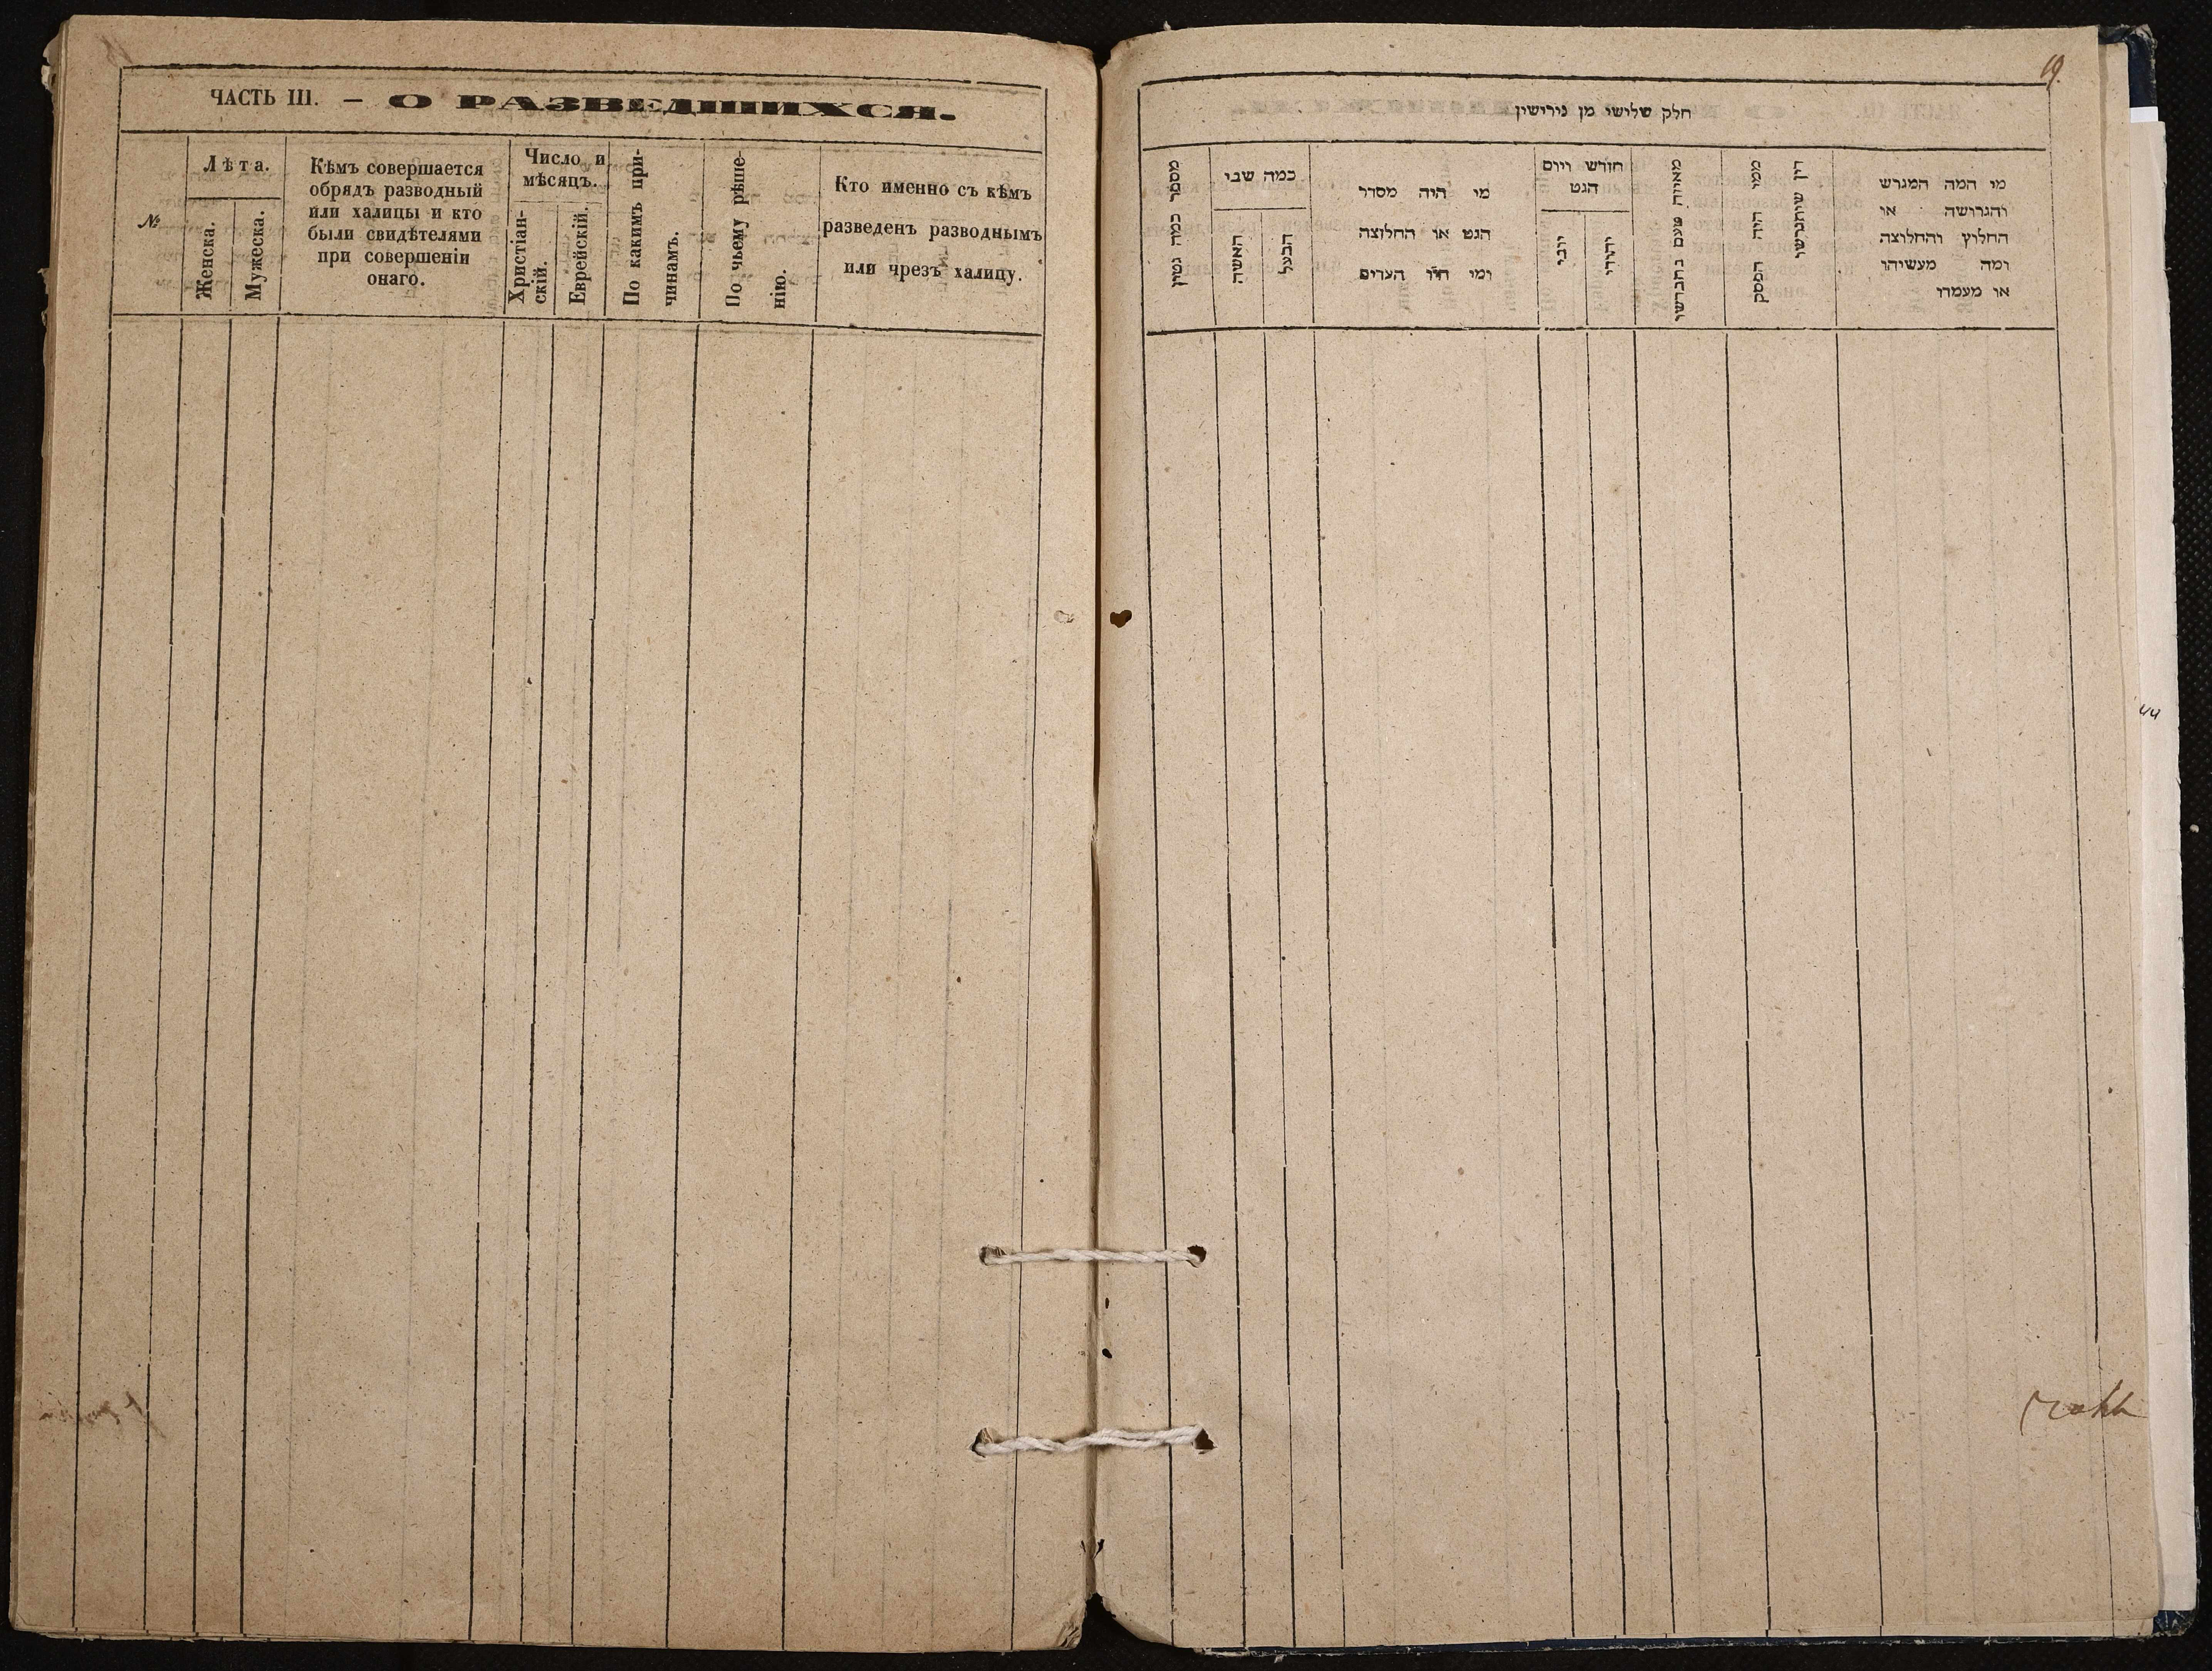 ЧАСТЬ III. — О РАЗВЕДШИХСЯ.
№
Лѣта.
Женска.
Мужеска.
Кѣмъ совершается
обрядъ разводный
или халицы и кто
были свидѣтелями
при совершеніи
онаго.
Число и
мѣсяцъ.
Христіан-
скій.
Еврейскій.
По какимъ при-
чинамъ.
По чьему рѣше-
нію.
Кто именно съ кѣмъ
разведенъ разводнымъ
или чрезъ халицу.
חלק שלישי מן גירישין
מספר כמה גטין
כמה שבי
האשה
הבעל
מי היה מסדר
הגט או החלוצה
ומי היו העדים
חודש ויום
הגט
יהידי
מאיזה טעם נתגרשו
ממי היה הפסק
דין שיתגרשו
מי המה המגרש
והגרושה או
החלוץ והחלוצה
ומה מעשיהו
או מעמדו
44